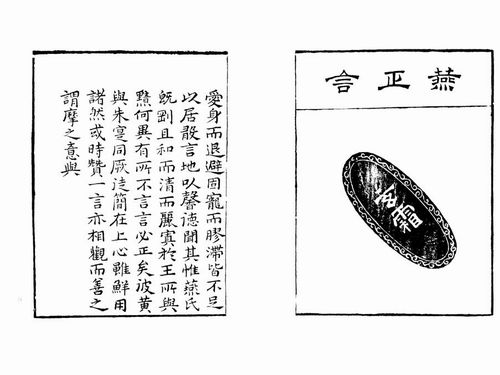 燕正言
玄霜
愛身而退避固寵而膠滯皆不足
以居散言地以馨德聞其惟燕氏
既剴且和而清而麗賓於王所與
黙何異有所不言言必正矣彼黄
與朱寔同厥徒簡在上心雖鮮用
諸然或時贊一言亦相觀而善之
謂摩之意與